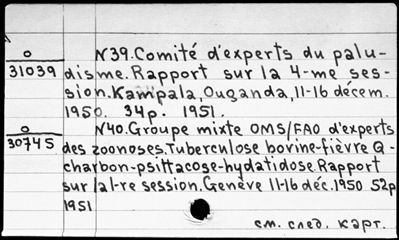 О
31039
N39. Comité d'experts du palu-
disme. Rapport sur la 4-me ses-
sion. Kampala, Ouganda, 11-16 décem.
1950. 34p. 1951.
О
30745
N40. Groupe mixte OMS/FAO d'experts
des zoonoses. Tuberculose bovine-fièvre Q-
charbon-psittacose-hydatidose. Rapport
sur la 1-re session. Genève 11-16 déc. 1950 52p
1951
см. след. карт.